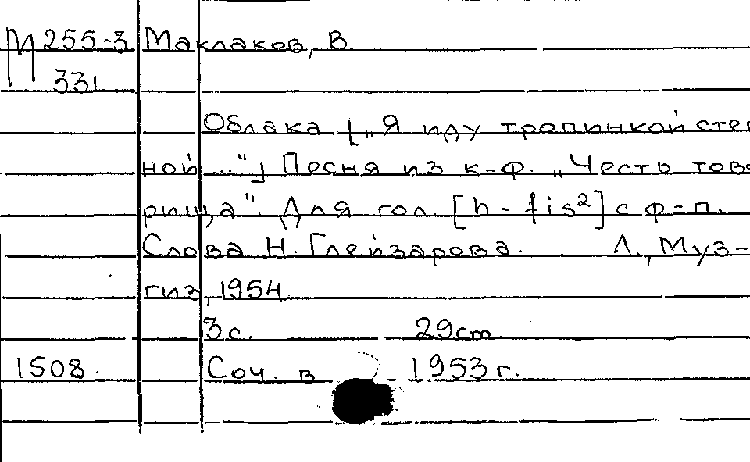 М 255-3 Маклаков, В.
331
Облака [„Я иду тропинкой степ
ной..."] Песня из к-ф. „Честь това
рища". Для гол. [h - fis²] с ф-п.
Слова Н. Глейзарова. Л., Муз-
гиз, 1954
3 с. 29 cm
1508. Соч. в 1953 г.